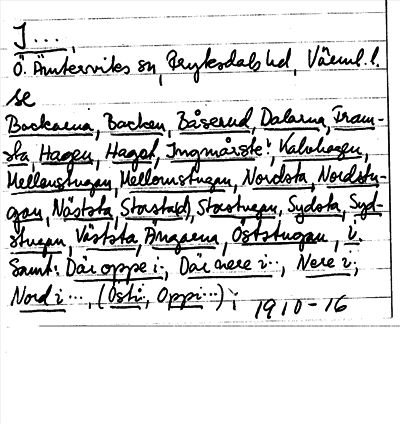 I ...,
Ö. Ämterviks sn, Fryksdals hd, Värml. l.
se
Backarna, Backen, Båserud, Dalarna, Fram-
sta, Hagen, Haget, Ingmårste!, Kalvhagen,
Mellanstugan, Mellomstugan, Nordsta, Nordstu-
gan, Näststa, Storstad, Storstugan, Sydsta, Syd-
stugan, Väststa, Ängarna, Öststugan, i.
Samt: Där oppe i, Där nere i..., Nere i,
Nord i ..., (Öst i, Opp i...) i
1910-16